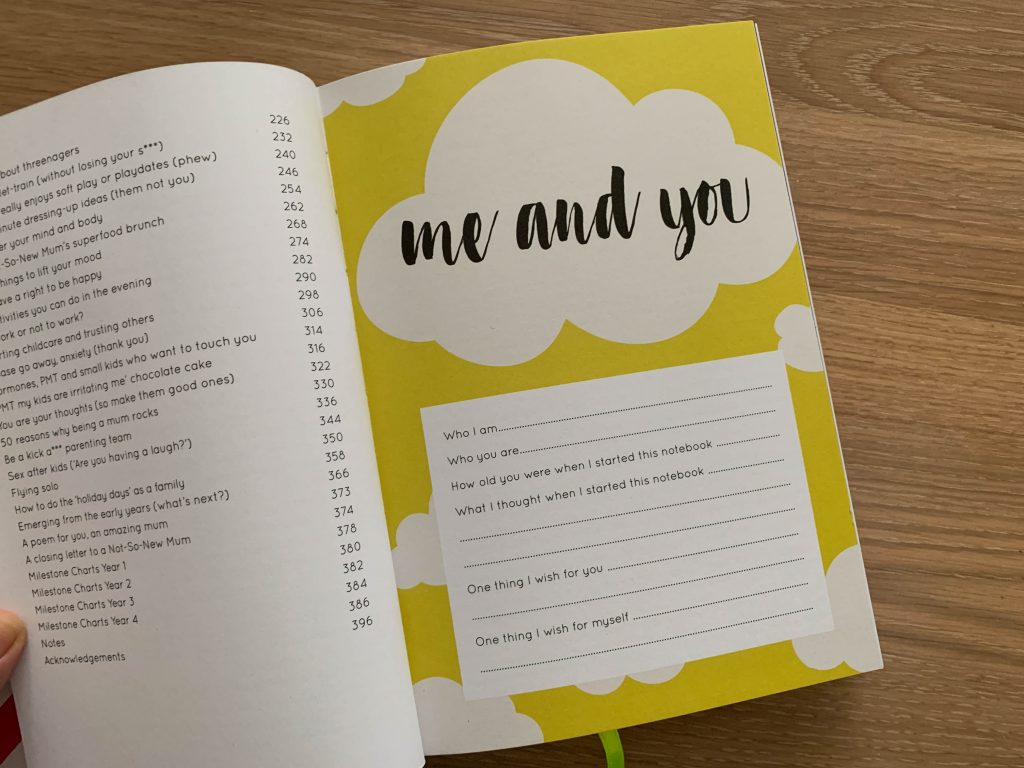 bout threenagers 226
let-train (without losing your s***) 232
eally enjoys soft play or playdates (phew) 240
inute dressing-up ideas (them not you) 246
er your mind and body 254
-So-New Mum's superfood brunch 262
hings to lift your mood 268
ave a right to be happy 274
tivities you can do in the evening 282
ork or not to work? 290
rting childcare and trusting others 298
ase go away, anxiety (thank you) 306
ormones, PMT and small kids who want to touch you 314
PMT my kids are irritating me' chocolate cake 316
You are your thoughts (so make them good ones) 322
50 reasons why being a mum rocks 330
Be a kick a*** parenting team 336
Sex after kids ('Are you having a laugh?') 344
Flying solo 350
How to do the 'holiday days' as a family 358
Emerging from the early years (what's next?) 366
A poem for you, an amazing mum 373
A closing letter to a Not-So-New Mum 374
Milestone Charts Year 1 378
Milestone Charts Year 2 380
Milestone Charts Year 3 382
Milestone Charts Year 4 384
Notes 386
Acknowledgements 396
me and you
Who I am
Who you are
How old you were when I started this notebook
What I thought when I started this notebook
One thing I wish for you
One thing I wish for myself